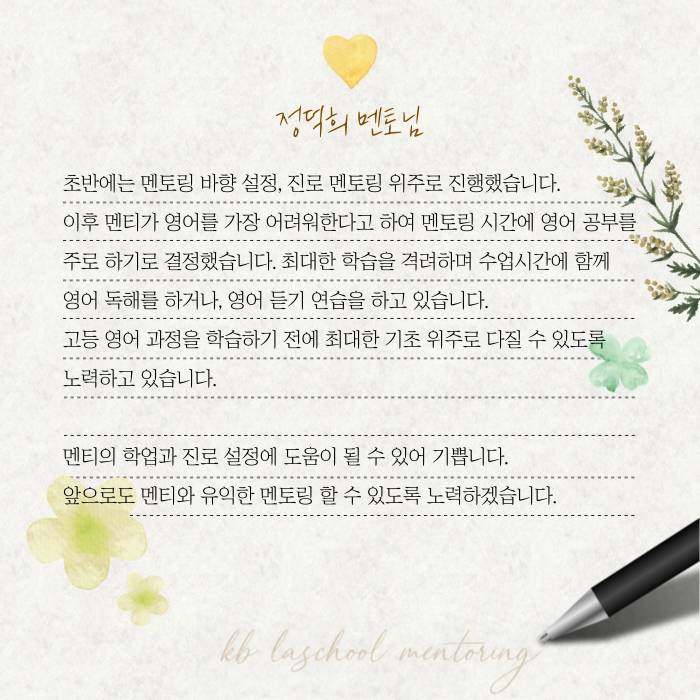 정덕희 멘토님
초반에는 멘토링 바향 설정, 진로 멘토링 위주로 진행했습니다.
이후 멘티가 영어를 가장 어려워한다고 하여 멘토링 시간에 영어 공부를
주로 하기로 결정했습니다. 최대한 학습을 격려하며 수업시간에 함께
영어 독해를 하거나, 영어 듣기 연습을 하고 있습니다.
고등 영어 과정을 학습하기 전에 최대한 기초 위주로 다질 수 있도록
노력하고 있습니다.
멘티의 학업과 진로 설정에 도움이 될 수 있어 기쁩니다.
앞으로도 멘티와 유익한 멘토링 할 수 있도록 노력하겠습니다.
kb laschool mentoring